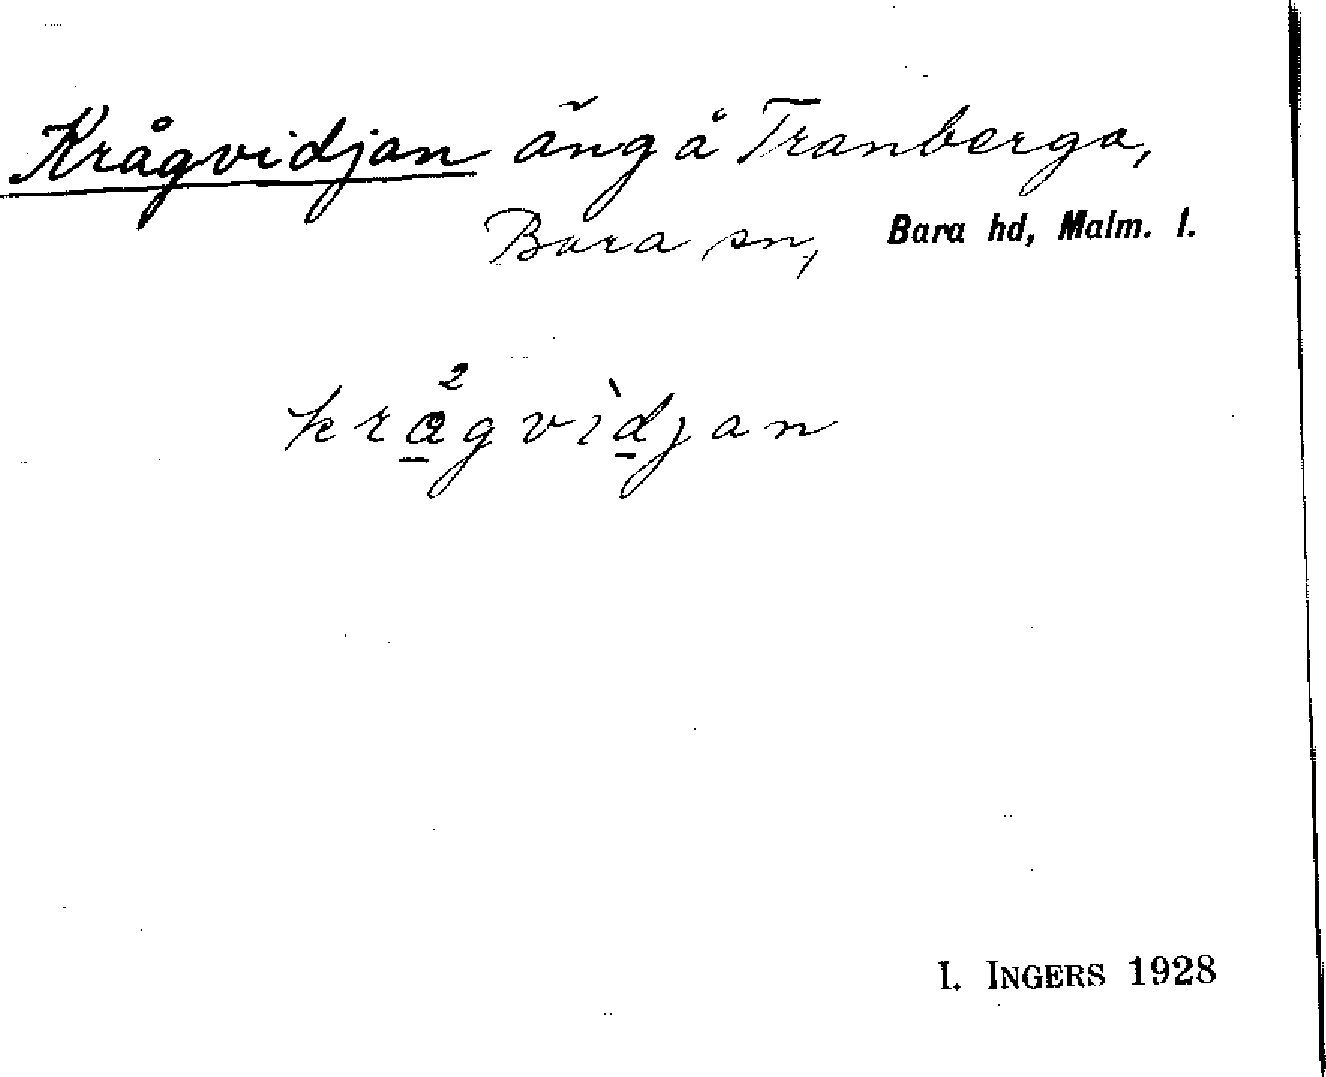 Krågvidjan äng å Tranberga,
Bara sn, Bara hd, Malm. l.
krågvìdjan
I. INGERS 1928